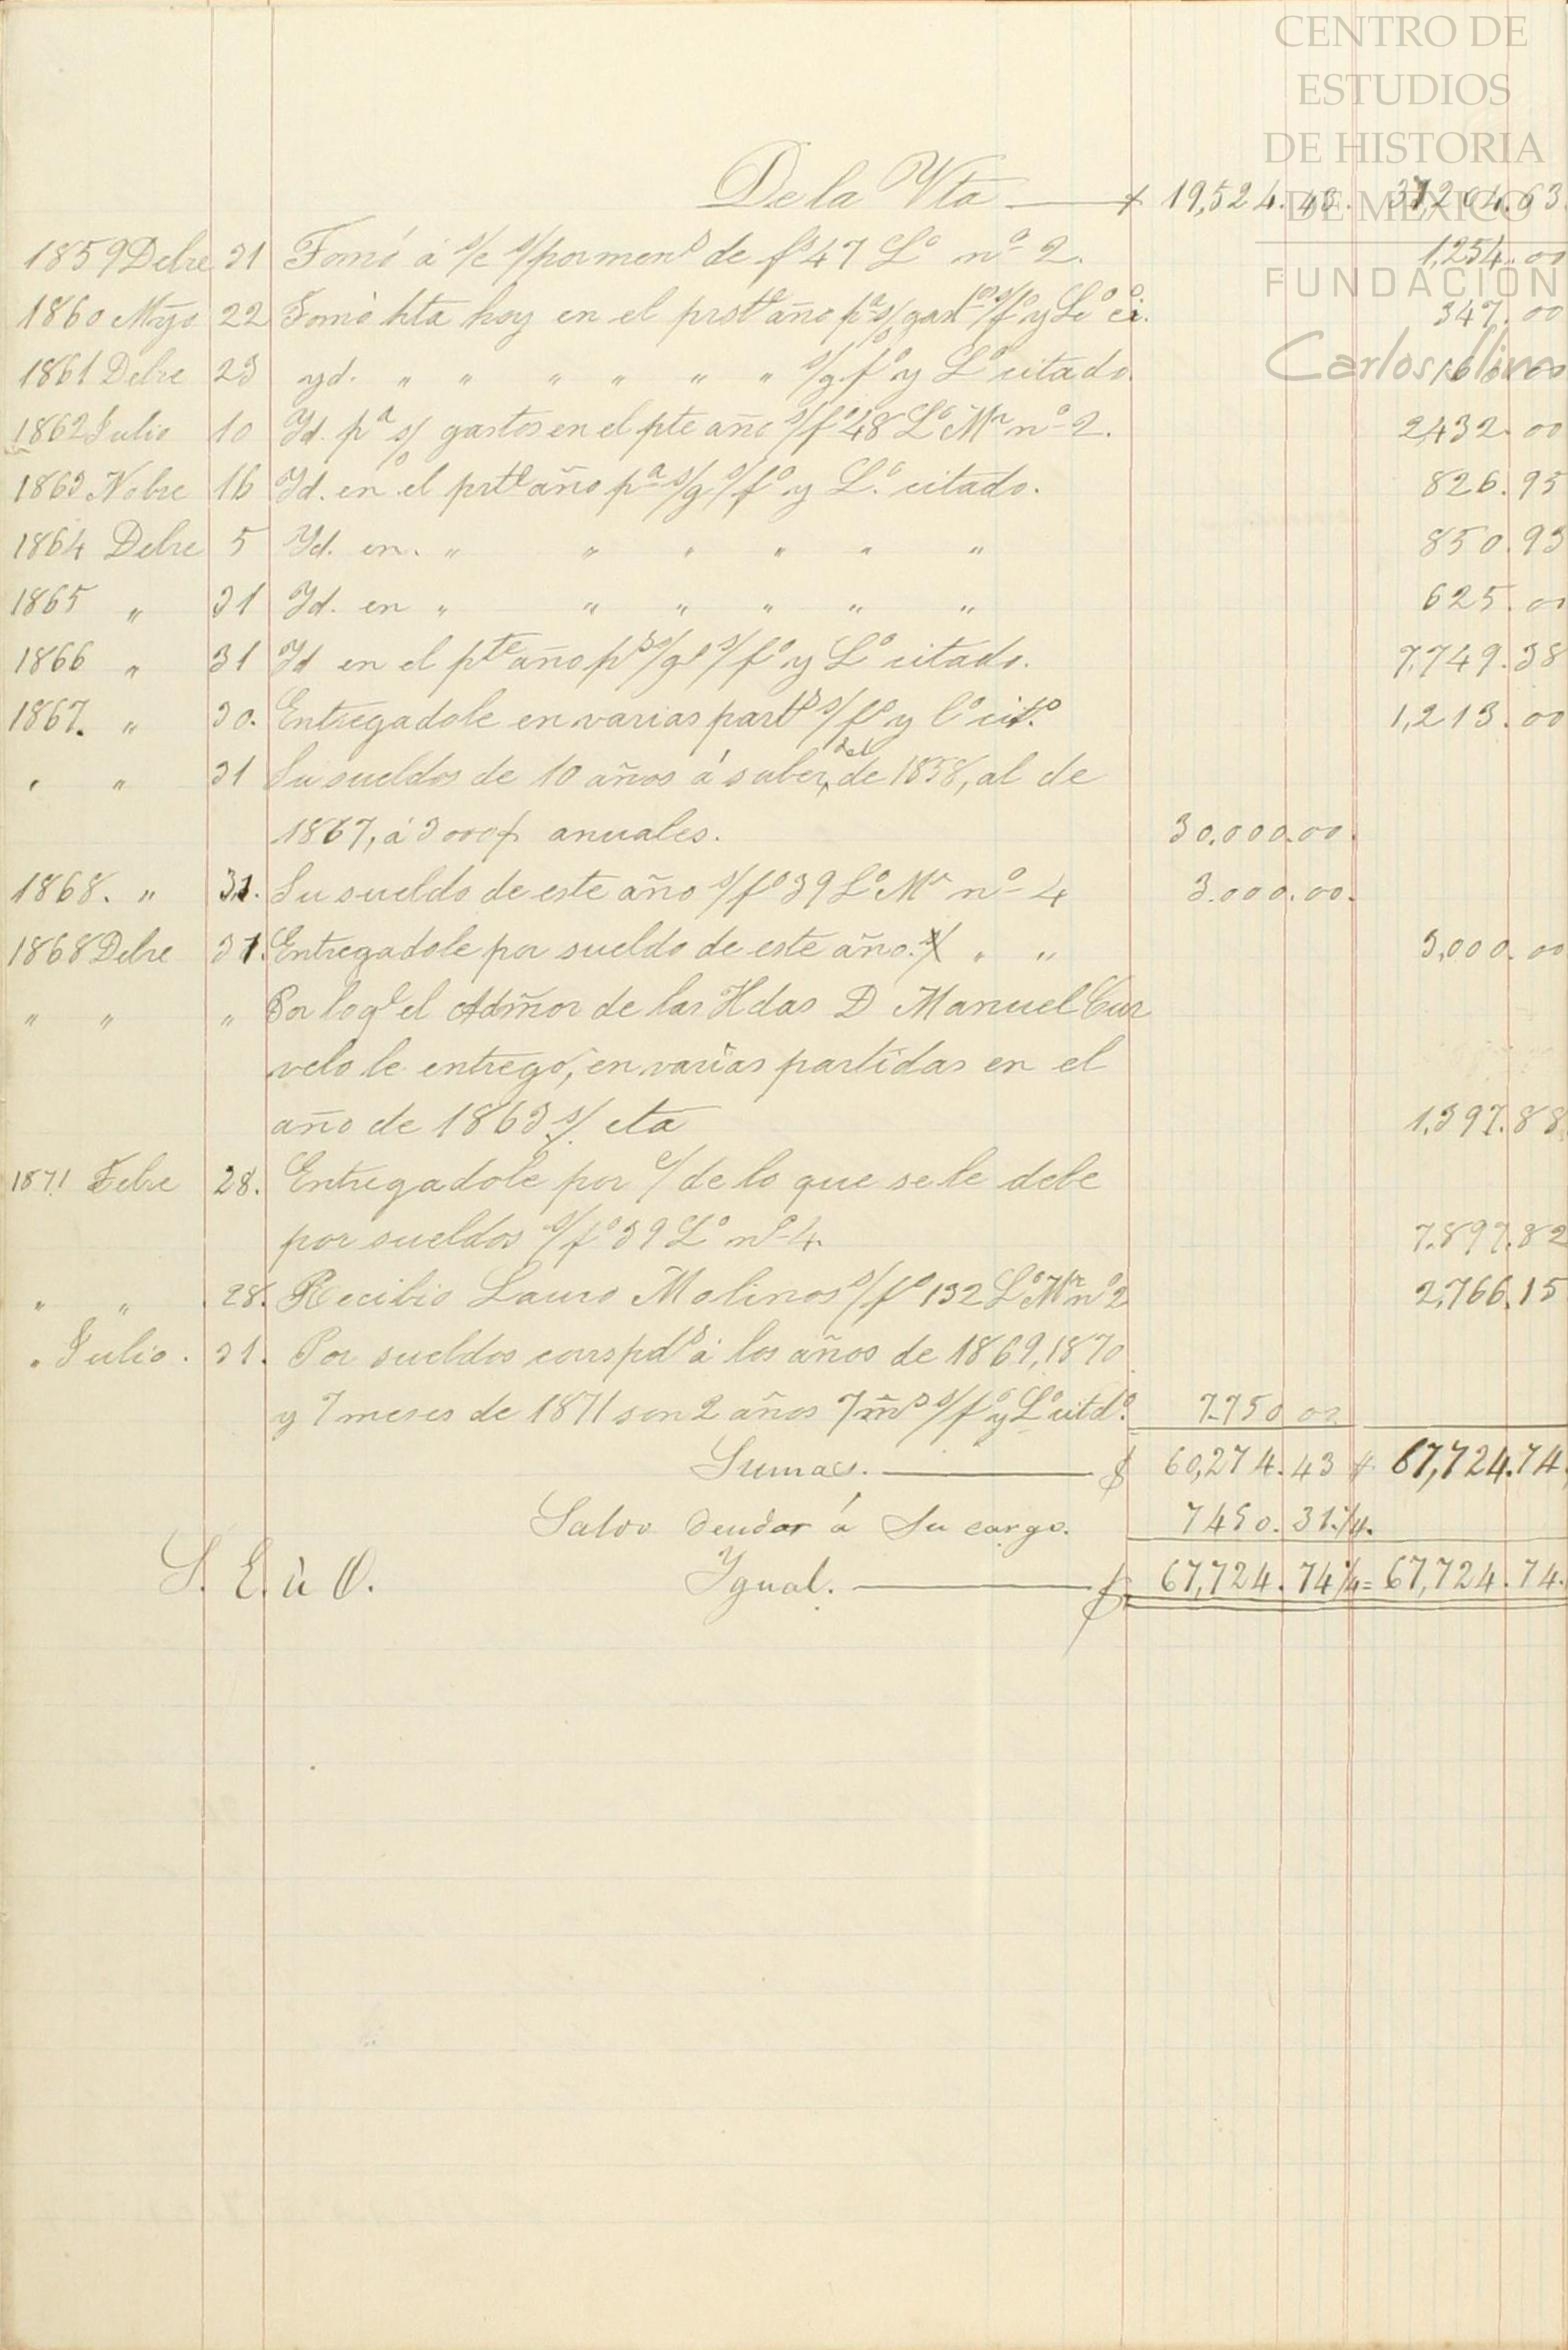 CENTRO DE
ESTUDIOS
DE HISTORIA
DE MÉXICO
FUNDACIÓN
Carlos Slim
De la Vta 19,524.43. 37,264.63
1859 Debre 31 Tomó á s/c s/pormens de fº 47 Lº nº 2. 1,254.00
1860 Myo 22 Tomó hta hoy en el prste año pª s/ gastos s/fº y Lº ci. 347.00
1861 Debre 23 yd. " " " " " " s/g. fº y Lº citado.
1862 Julio 10 Yd. pª s/ gastos en el pte año s/fº 48 Lº Mr nº 2. 2432.00
1863 Nobre 16 Yd. en el prte año pª s/g s/fº y Lº citado. 826.95
1864 Debre 5 Yd. en. " " " " " " 850.93
1865 " 31 Yd. en " " " " " " 625.00
1866 " 31 Yd en el pte año ps s/gs s/fº y Lº citado. 7,749.38
1867. " 30. Entregadole en varias parts s/fº y lº citº 1,213.00
" " 31 Su sueldos de 10 años á saber, del de 1858, al de
1867, á 3000p anuales. 30.000.00.
1868. " 31. Su sueldo de este año s/fº 39 Lº Mr nº 4 3.000.00.
1868 Debre 31. Entregadole por sueldo de este año. s/ " " 3,000.00
" " " Por loqe el Admor de las Hdas D Manuel Cur
velo le entregó, en varias partidas en el
año de 1863 s/. cta 1,397.88
1871 Febre 28. Entregadole por c/ de lo que se le debe
por sueldos s/fº 39 Lº nº 4. 7.897.82
" " 28. Recibio Lauro Molinos s/fº 132 Lº Mr nº 2 2,766.15
" Julio. 31. Por sueldos corspds á los años de 1869, 1870
y 7 meses de 1871 son 2 años 7 ms s/fº y Lº citdº. 7.750 00
Sumas. $ 60,274.43 $ 67,724.74
Saldo deudor á Su cargo. 7450.31.¼.
S. E. ù O. Ygual. $ 67,724.74¼ = 67,724.74.